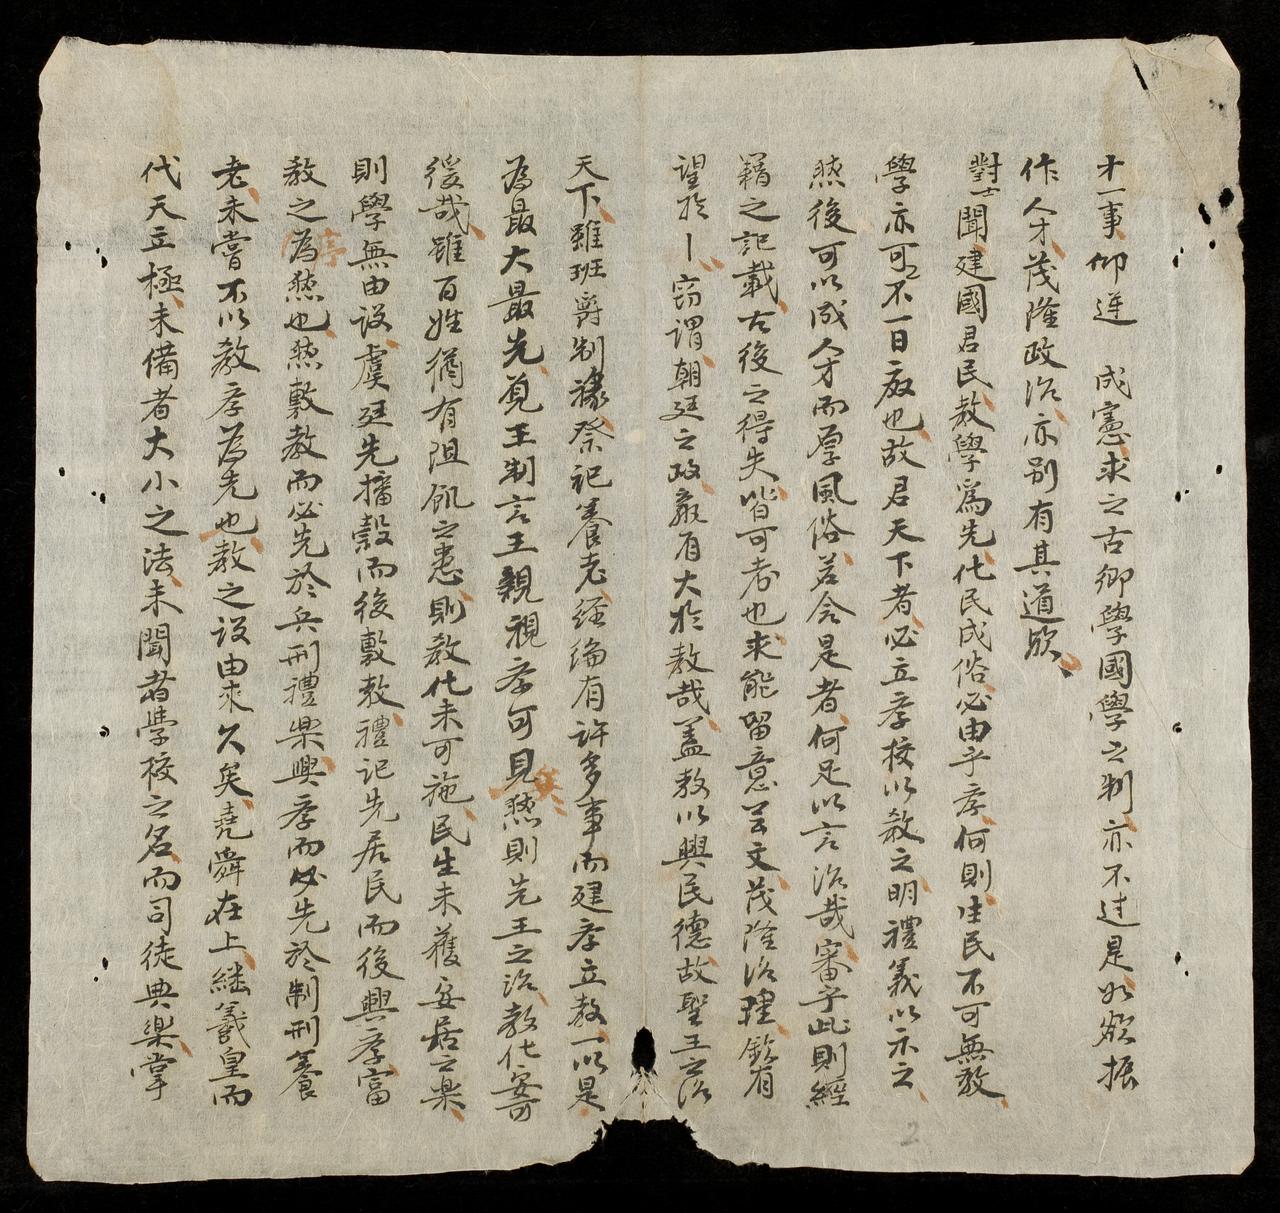 才一事仰遵　成憲求之古鄉學國學之制亦不过是如欲振
作人才茂隆政治亦别有其道欤
對士聞建國君民教學爲先化民成俗必由乎孝何則生民不可無教
學亦可不一日廢也故君天下者必立孝校以教之明禮義以示之
然後可以成人才而厚風俗若舍是者何足以言治哉審乎此則經
籍之記載古後之得失皆可考也求能留意芸文茂隆治理欽有
望於丨窃謂朝廷之政嚴有大於教哉盖教以興民德故聖王之治
天下雖班爵制祿祭祀養老經綸有許多事而建孝立教一以是
為最大最先覓王制言王親視孝可見矣然則先王之治教化寔可
後哉雖百姓猶有阻飢之患則教化未可施民生未獲安居之樂
則學無由設虞廷先播穀而後敷教禮記先居民而後興孝富
教之為然也亭然敷教而必先於兵刑禮樂興孝而必先於制刑養
老未嘗不以教孝為先也教之設由來久矣堯舜在上継羲皇而
代天立極未備者大小之法未聞者學校之名而司徒典樂掌
2